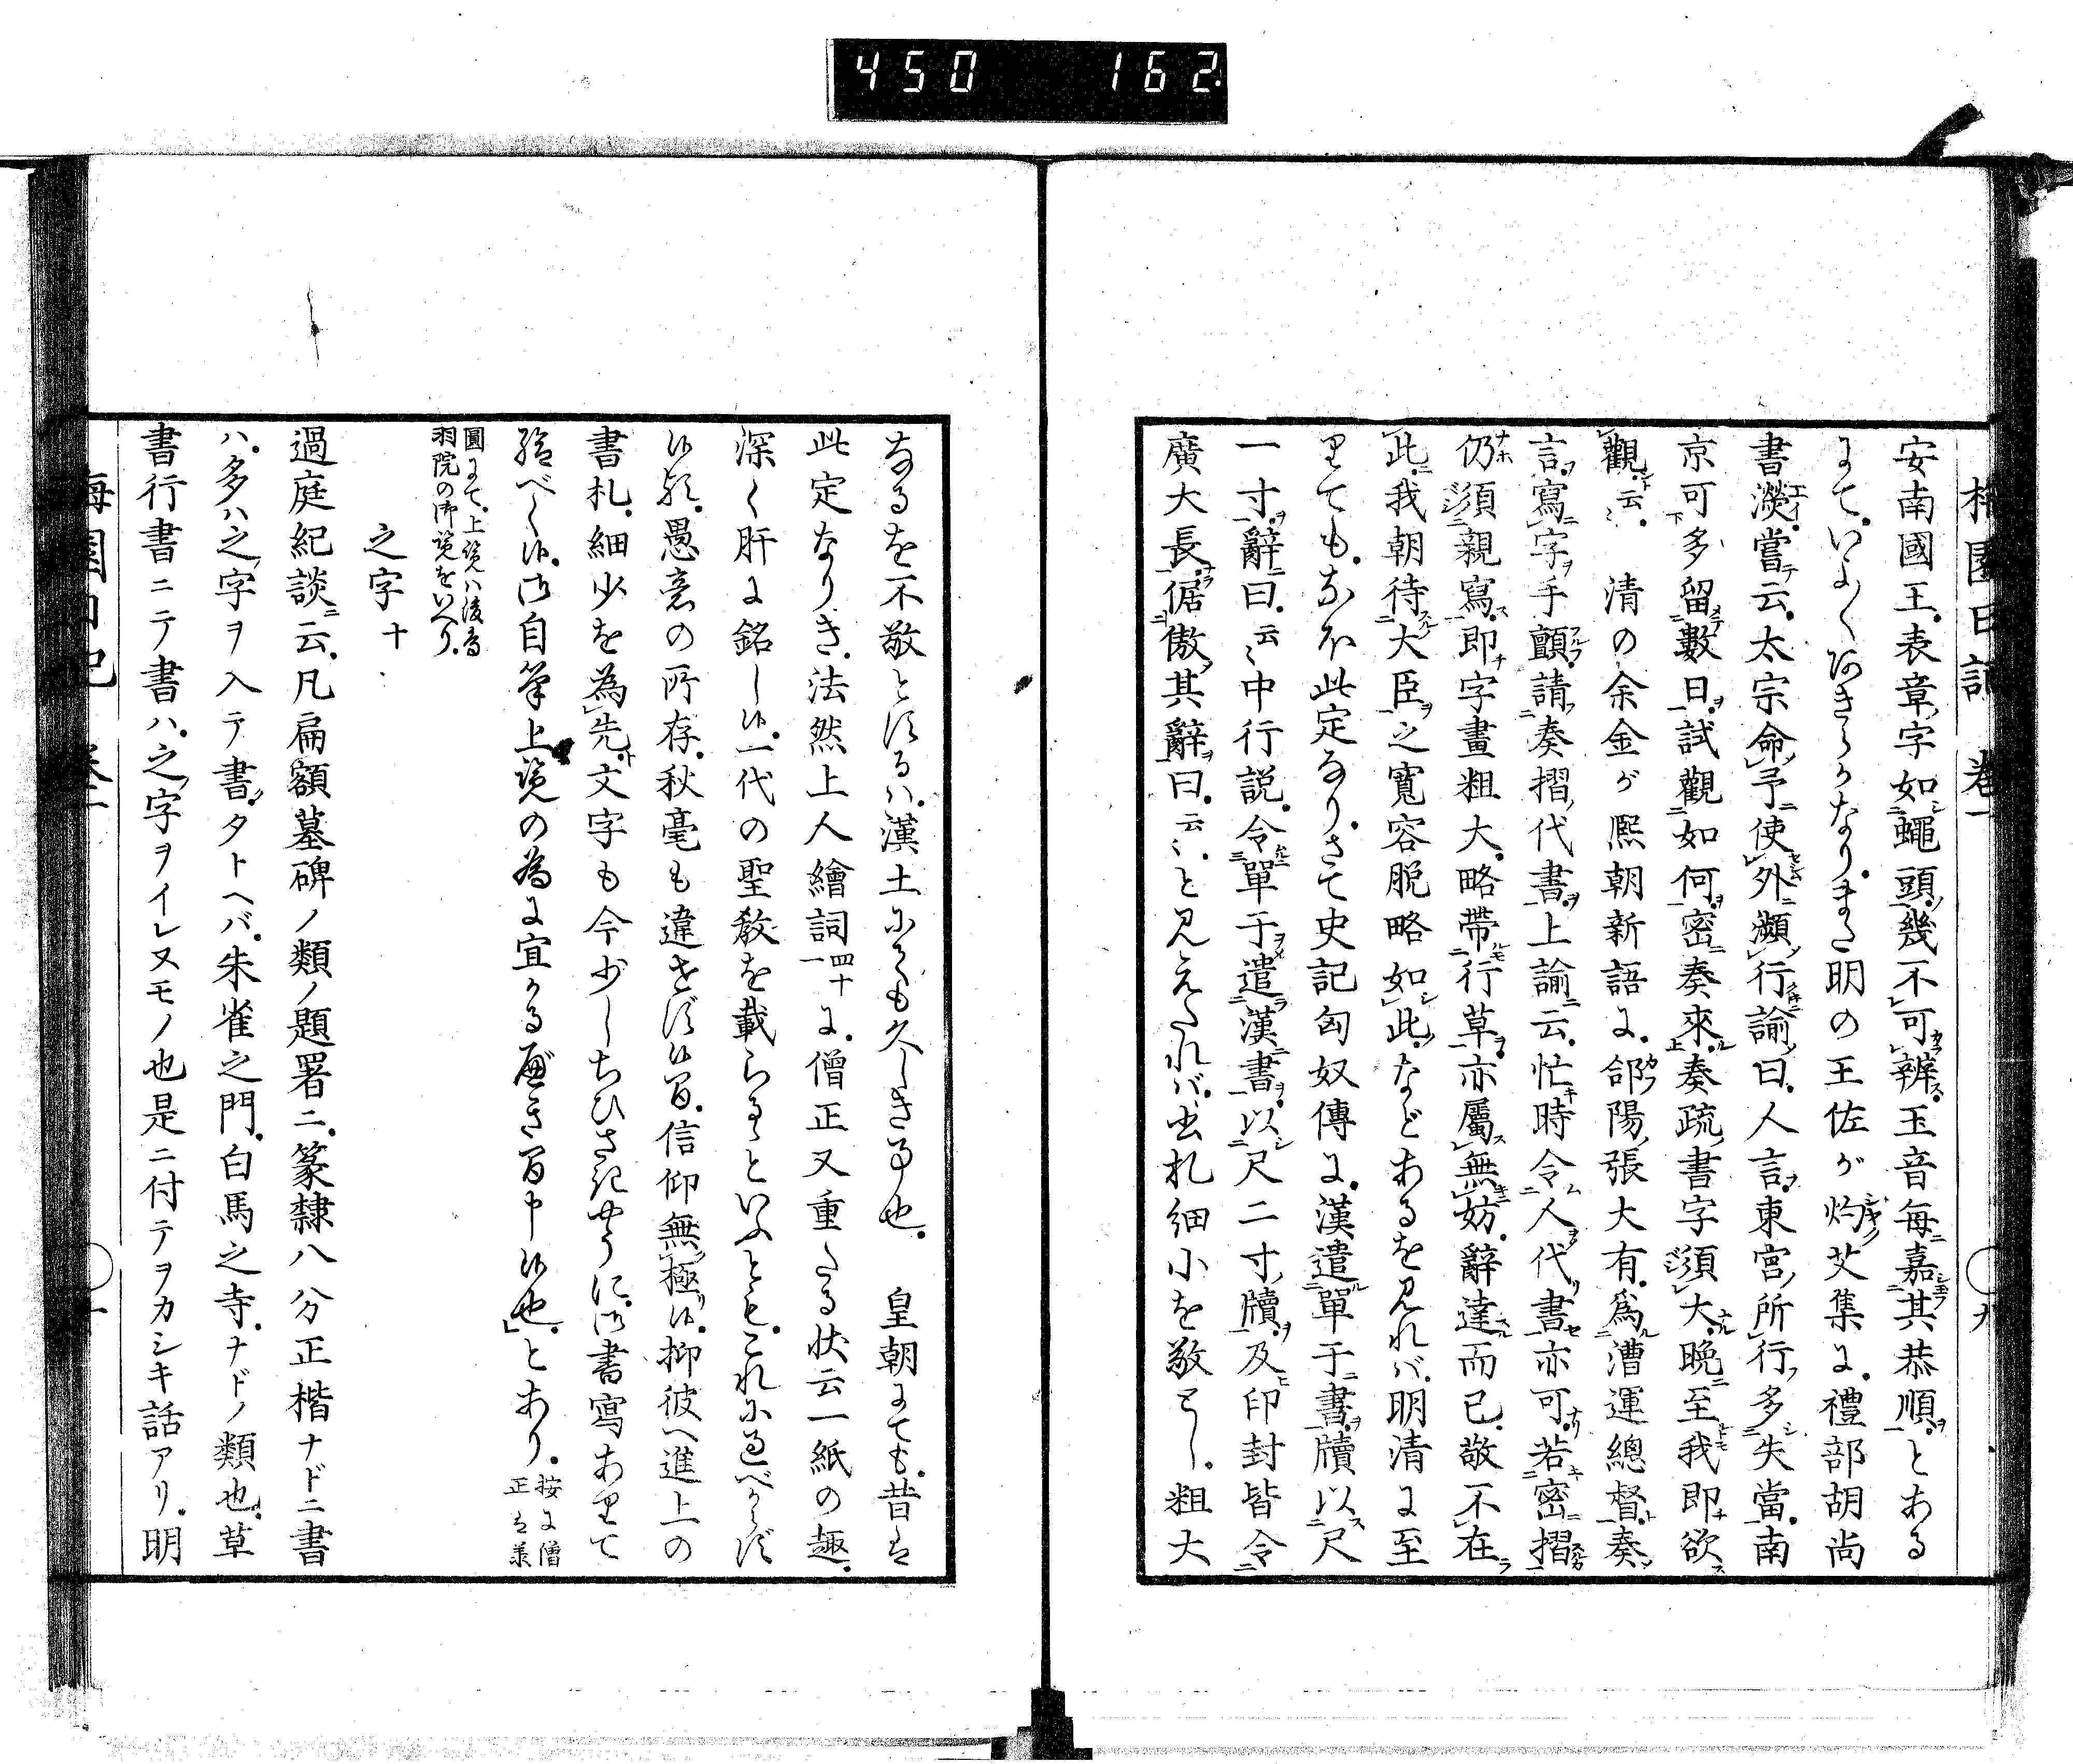 450 162
梅園日記 卷一 九
安南國王表章字如蠅頭幾不可辨玉音毎嘉其恭順とある
にて、いよ〳〵あきらかなり。また明の王佐が灼艾集に、禮部胡尚
書濙嘗云、太宗命予使外瀕行諭曰、人言東宮所行多失當南
京可多留數日試觀如何密奏來奏疏書字須大晚至我即欲
觀云〻 清の余金が熙朝新語に、郃陽張大有爲漕運總督奏
言寫字手顫請奏摺代書上諭云忙時令人代書亦可若密摺
仍須親寫即字畫粗大略帶行草亦屬無妨辭達而已敬不在
此我朝待大臣之寬容脱略如此などあるを見れバ、明清に至
りても、なほ此定なり。さて史記匈奴傳に、漢遣單于書牘以尺
一寸辭曰云〻中行説令單于遣漢書以尺二寸牘及印封皆令
廣大長倨傲其辭曰云〻と見えたれバ、書札細小を敬とし。粗大
なるを不敬とするハ、漢土にても久しき事也。 皇朝にても、昔は
此定なりき。法然上人繪詞四十一に、僧正又重たる状云一紙の趣、
深く肝に銘し候。一代の聖教を載らるゝといふとも、これに過べからず
候歟。愚意の所存。秋毫も違せず候間。信仰無極候。抑彼へ進上の
書札。細少を為先。文字も今少しちひさきやうに。御書寫ありて
給べく候。御自筆上覽の為に宜かる應き間申候也」とあり。按に僧正は兼
圓にて、上覽ハ後鳥羽院の御覽をいへり。
之字十
過庭紀談ニ云、凡扁額墓碑ノ類ノ題署ニ、篆隸八分正楷ナドニ書
ハ、多ハ之ノ字ヲ入テ書、タトヘバ、朱雀之門、白馬之寺、ナドノ類也、草
書行書ニテ書ハ、之ノ字ヲイレヌモノ也是ニ付テヲカシキ話アリ。明
梅園日記 卷一 十